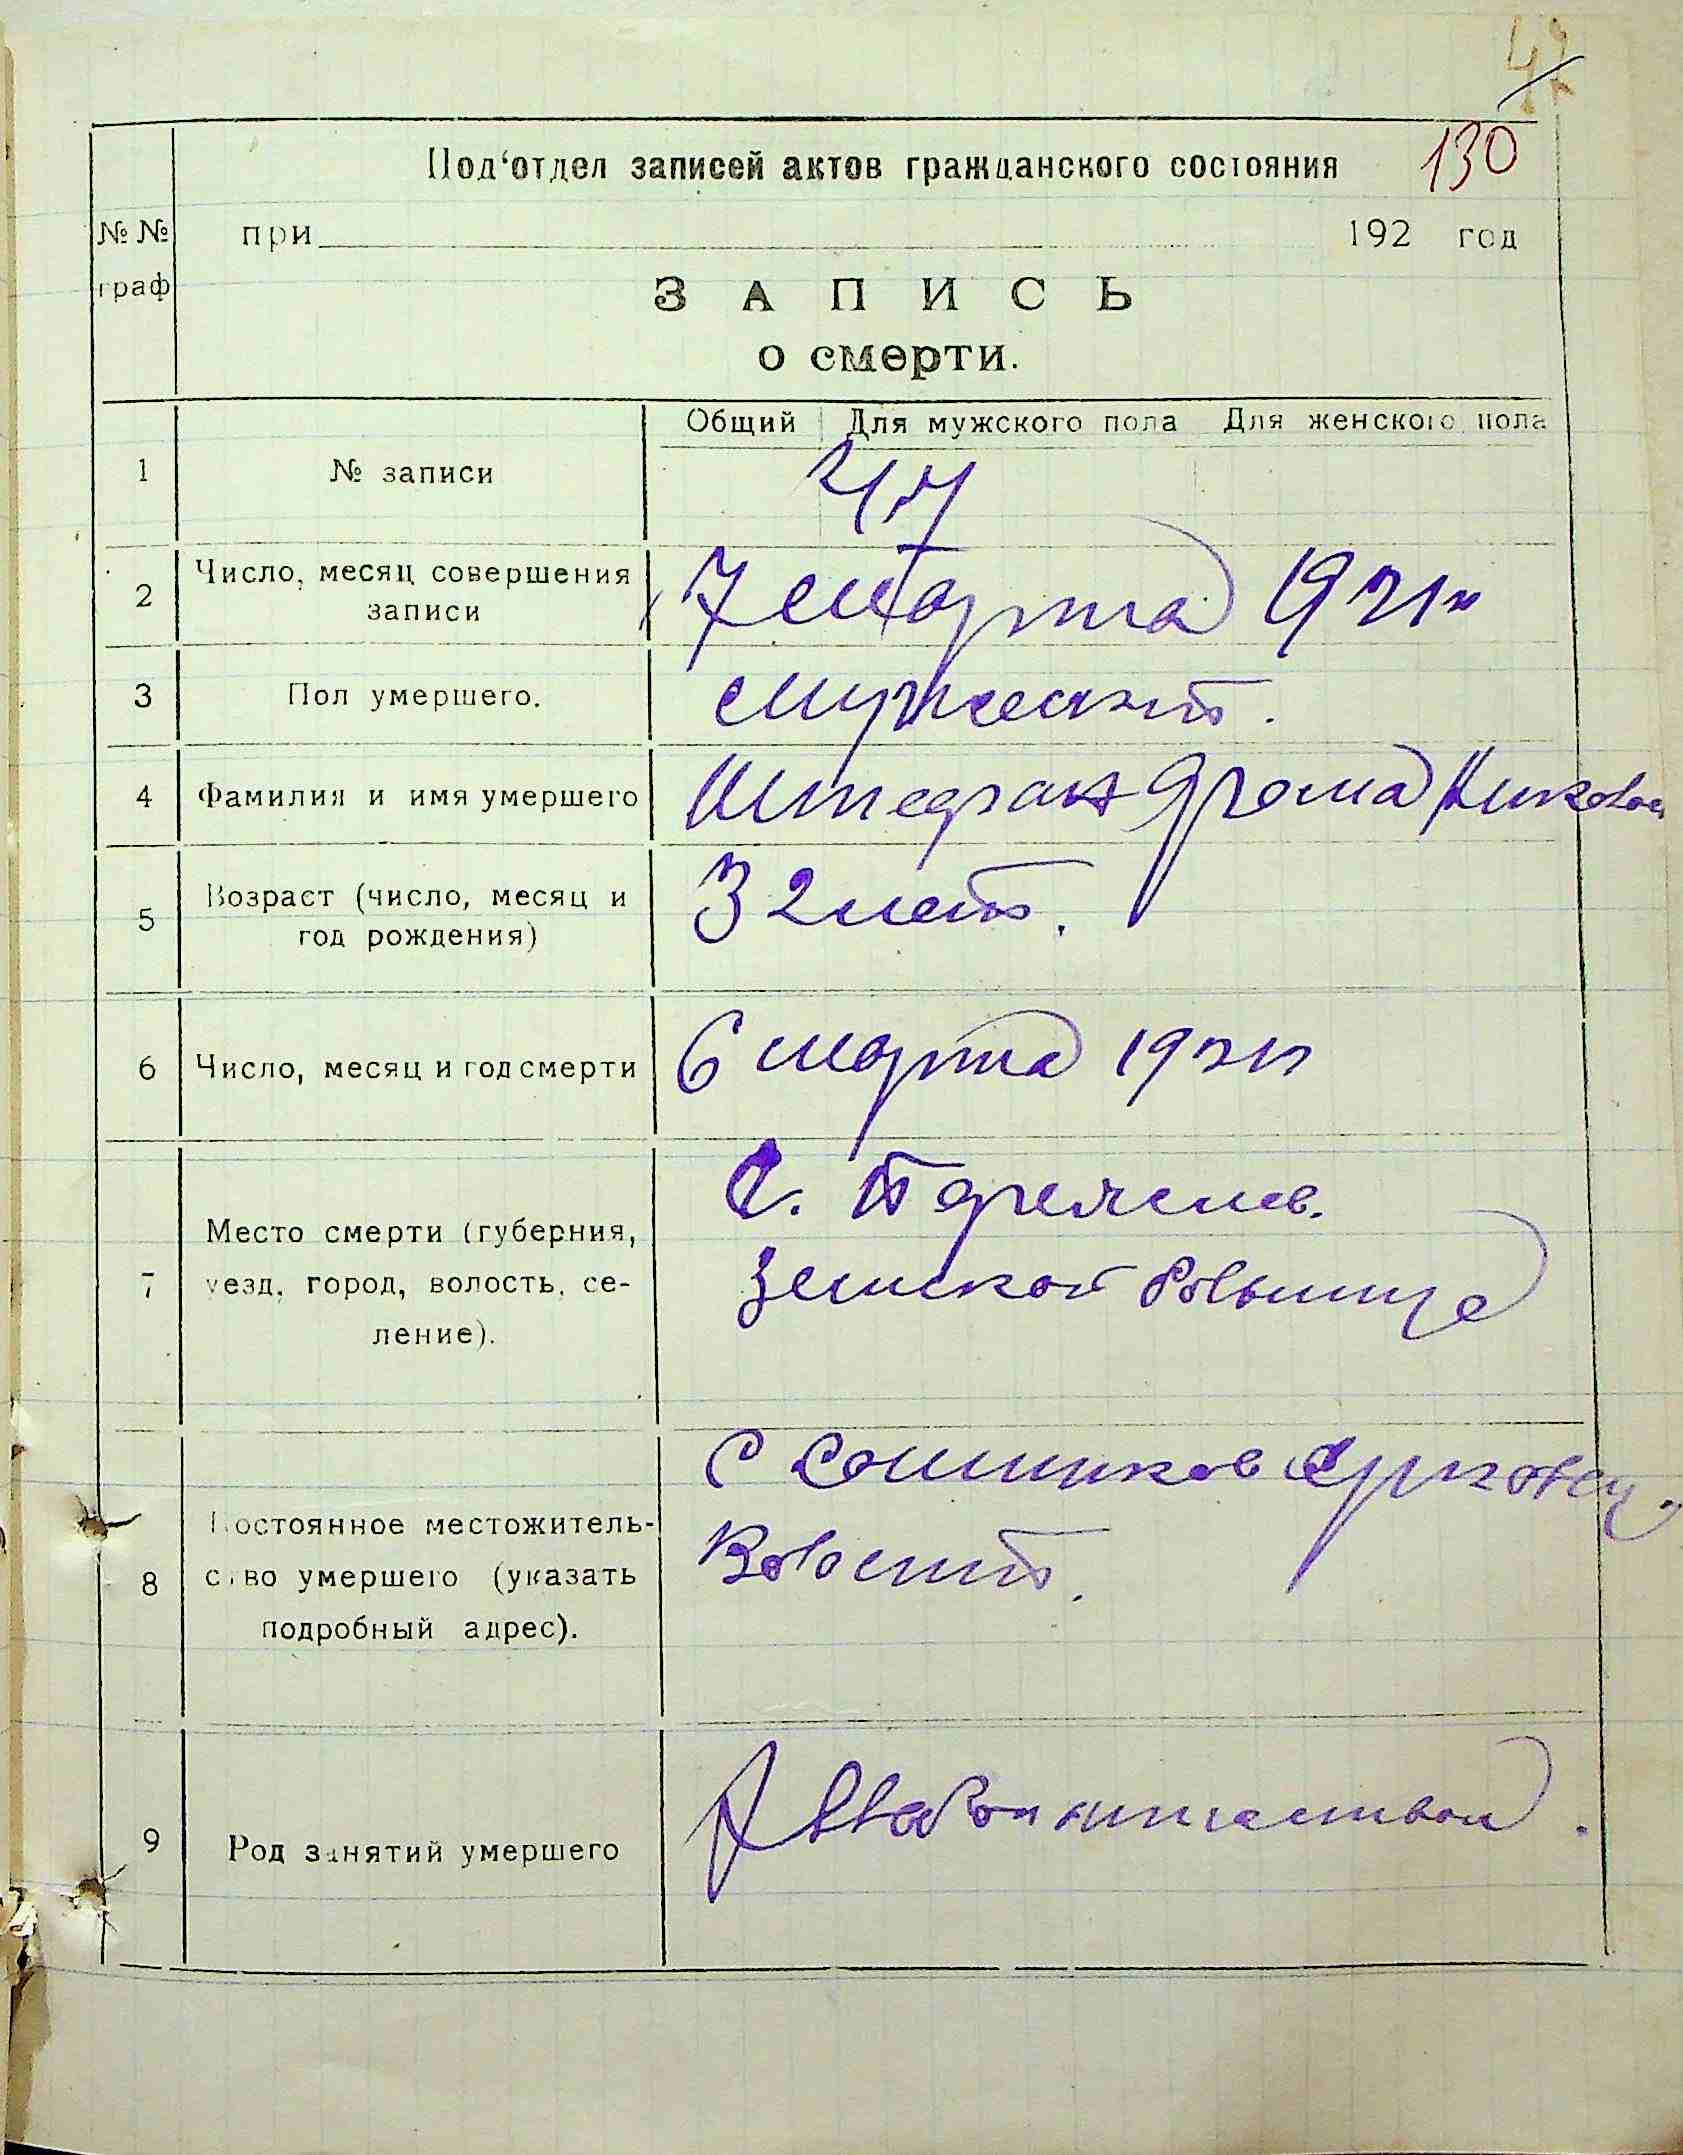 130
Под‘отдел записей актов гражданского состояния
№ № граф
при 192 год
ЗАПИСЬ
о смерти.
Общий Для мужского пола Для женского пола
1 № записи
2 Число, месяц совершения записи
7 Марта 1921 г
3 Пол умершего.
Мужеский.
4 Фамилия и имя умершего
5 Возраст (число, месяц и год рождения)
32 лет.
6 Число, месяц и год смерти
6 марта 1921 г
7 Место смерти (губерния, уезд, город, волость, селение).
Земской больнице
8 Постоянное местожительство умершего (указать подробный адрес).
С Сошников
Волости.
9 Род занятий умершего
Хлебопашеством.